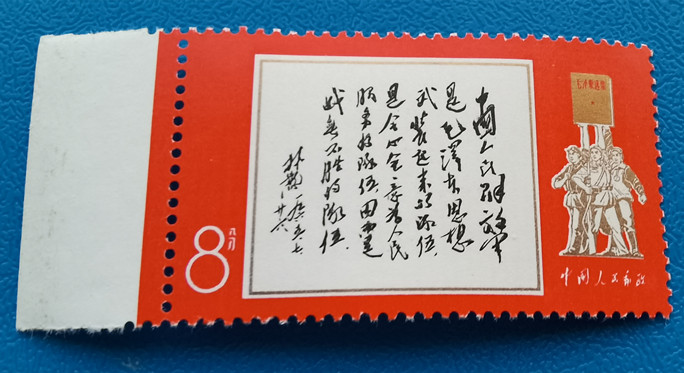 中国人民解放军
是毛泽东思想
武装起来的队伍,
是全心全意为人民
服务的队伍,因而是
战无不胜的队伍。
林彪 一九六五、七、
廿六
8分
毛泽东选集
中国人民邮政